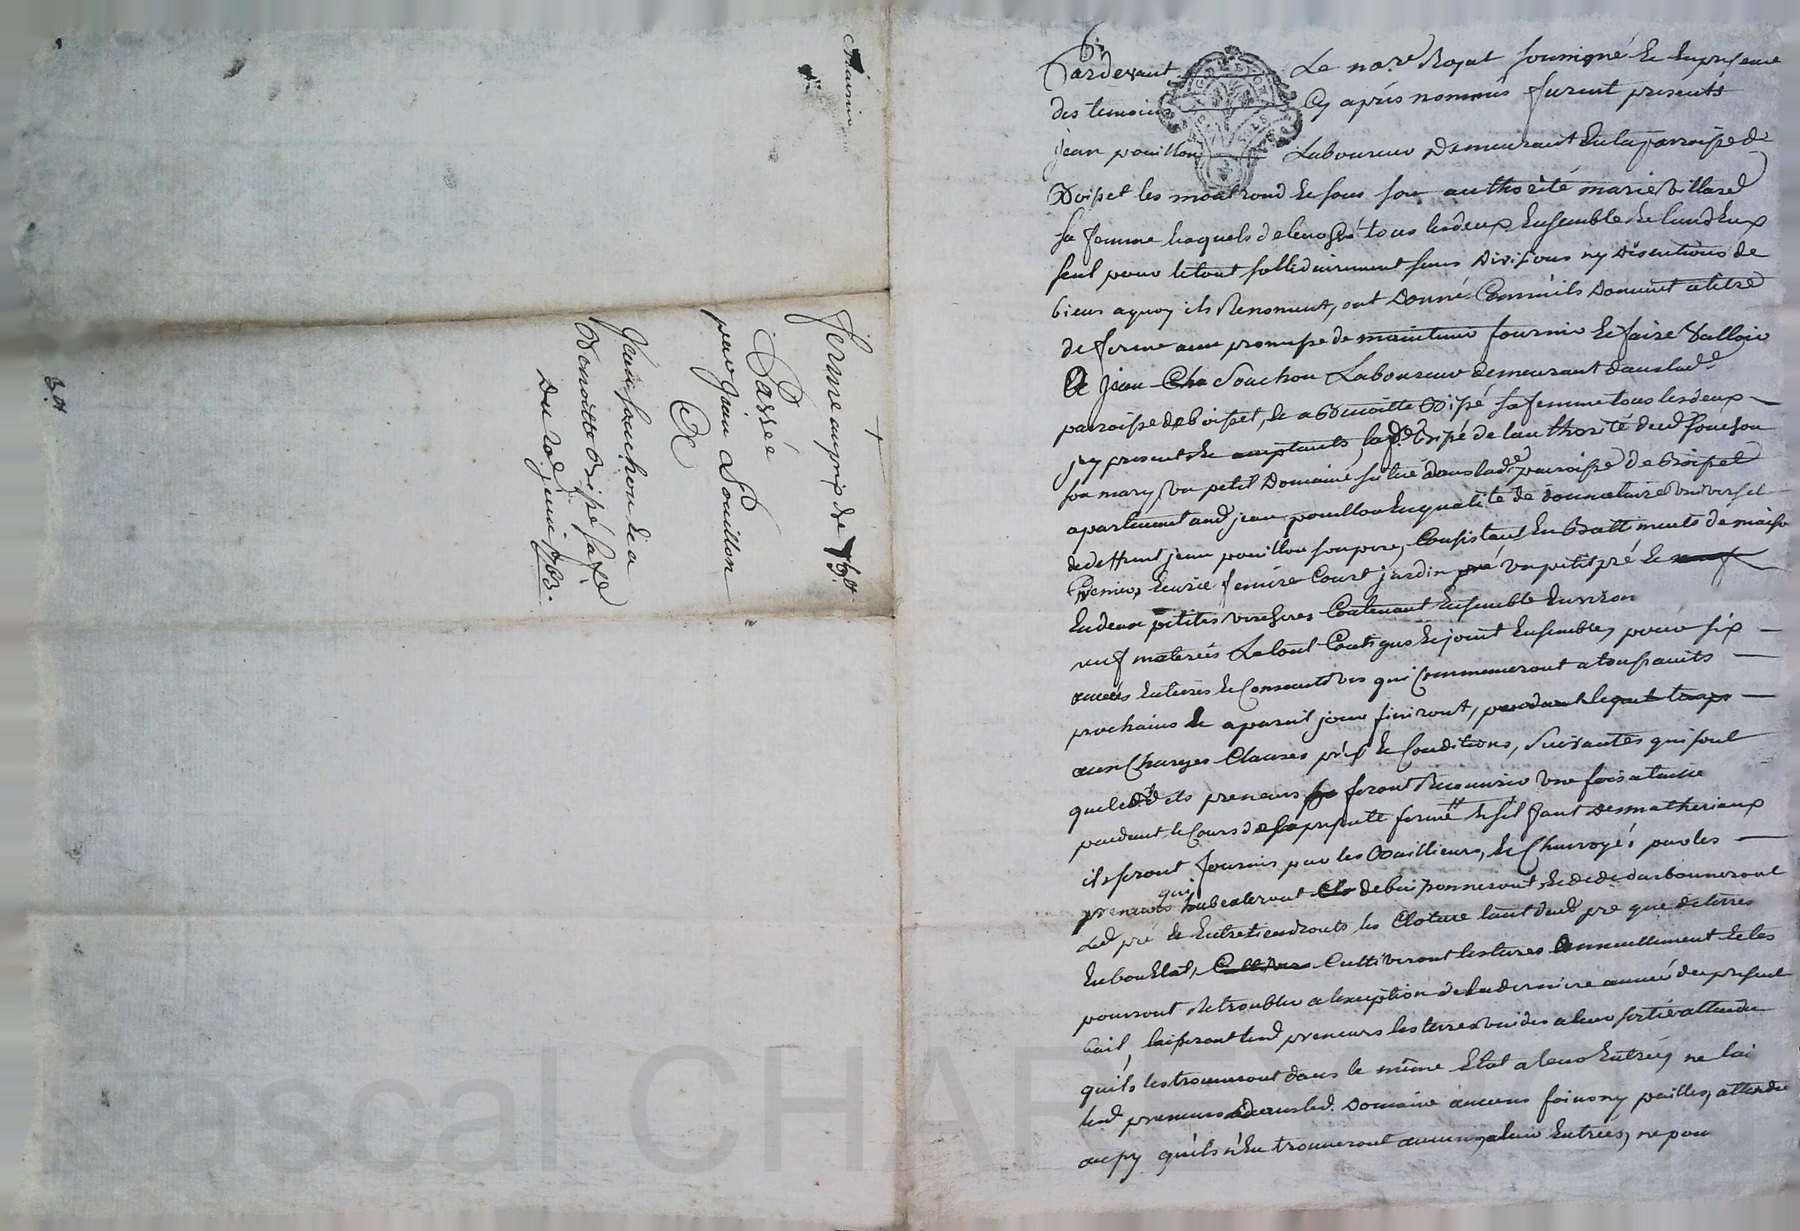 Chaussin
Ferme au prix de 76lt
Passée
par Jean Pouillon
A
Jean Souchon et a
Benoitte Bripé sa fe
Du 20e juin 1763.
Pardevant Le nore Royal soussigné et en presence
des temoins Cy après nommés furent presents
jean pouillon Laboureur demeurant en la parroisse de
Boisset les montrond et sous son authorité marie Villard
sa femme lesquels de leur gré tous les deux Ensemble et l'un d'eux
seul pour le tout sollidairement sans divisions ny discutions de
biens a quoy ils Renoncent, ont Donné Comm'ils Donnent a titre
de ferme avec promesse de maintenir fournir et faire Valloir
A jean Cha Souchon Laboureur demeurant dans lade
parroisse de boisset, et a Benoitte Bripé sa femme tous les deux
jcy presents et acceptants, lade Bripé de l'authorité dud souchon
son mary, Un petit Domaine situé dans lade parroisse de Boisset
apartenant aud jean pouillon En qualité de donnataire Universel
de deffunt jean pouillon son pere, Consistant En Battiments de maison
Grenier, Ecurie feniere Court jardin pré Un petit pré et neuf
En deux petites verchères Contenant Ensemble Environ
neuf meterées Le tout Contigus et joint Ensemble, pour six
années Entieres et Consecutives qui Commenceront a toussaints
prochains et a pareil jour finiront, pendant lequel temps
aux Charges Clauses prix et Conditions, Suivantes qui sont
que lesd preneurs feront Recouvrir Une fois a taille
pendant le Cours de la presente ferme et s'il faut Des matheriaux
ils seront fournis par les Bailleurs, et Charroyés par les
preneurs qui debuissonneront et dedarbonneront
Led pré et Entretiendronts les Cloture tant dud pré que des terres
En bon Etat, Cultivero Cultiveront les terres annuellement et les
pourront Retroubler a l'exception de la derniere année du present
bail, laisseront lesd preneurs les terres vuides a leur sortie attendu
qu'ils les trouveront dans le même Etat a leur Entrée, ne lai
lesd preneurs dans led. Domaine aucuns foins ny pailles, attendu
aussy qu'ils n'En trouveront aucun, a leur Entrées, ne pou
Pascal CHAREYRON